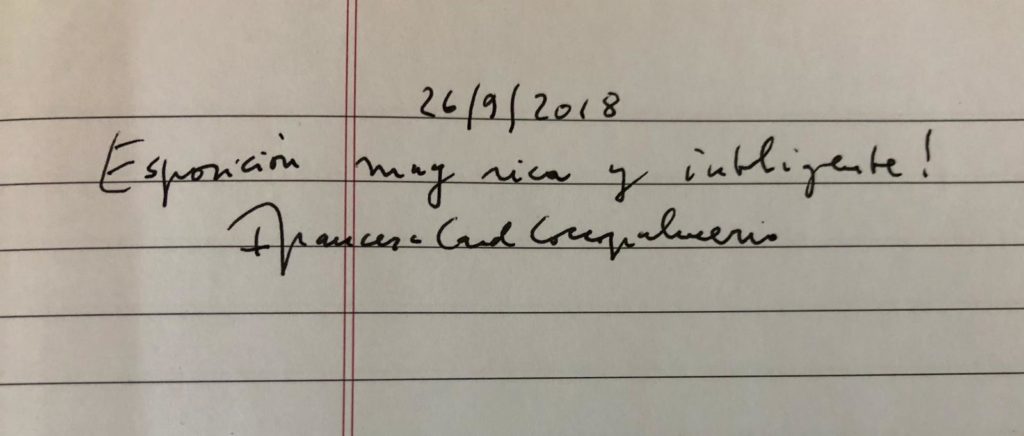 26/9/2018
Esposición muy rica y inteligente!
+ Francesco Card Coccopalmerio